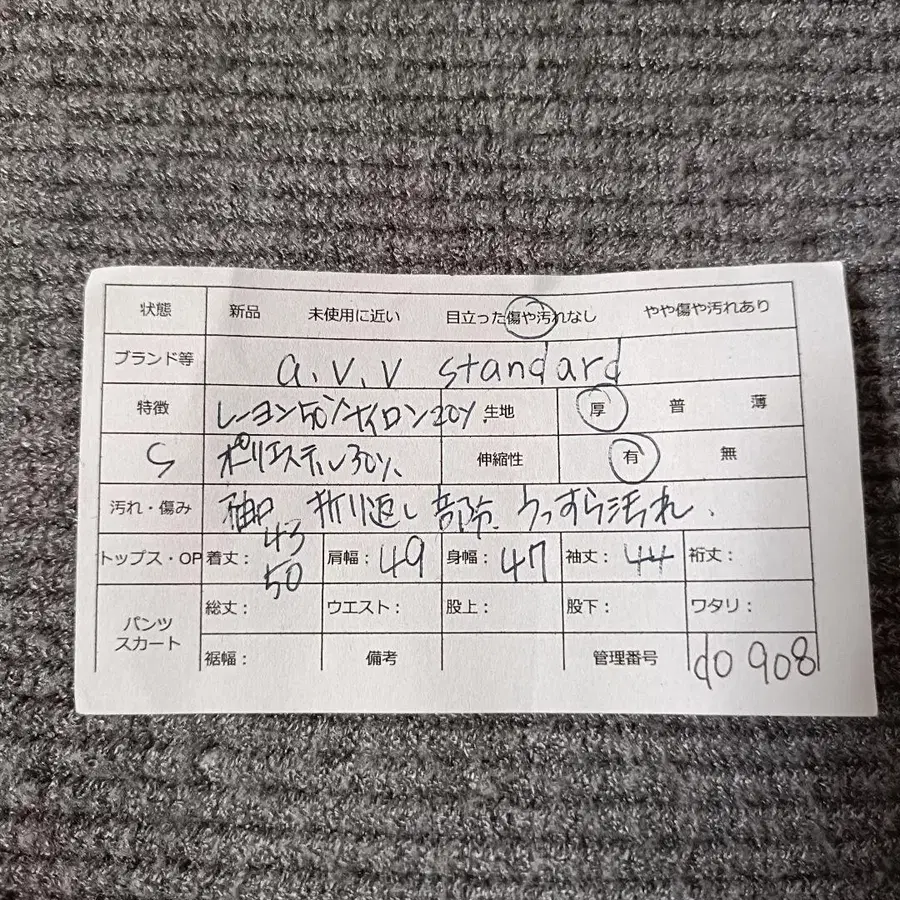 状態 新品 未使用に近い 目立った傷や汚れなし やや傷や汚れあり
ブランド等 a.v.v standard
特徴 レーヨン50%ナイロン20% 生地 厚 普 薄
S ポリエステル30% 伸縮性 有 無
汚れ・傷み 袖口 折り返し部分 うっすら汚れ.
トップス・OP 着丈: 43 50 肩幅: 49 身幅: 47 袖丈: 44 裄丈:
パンツ スカート 総丈: ウエスト: 股上: 股下: ワタリ:
裾幅: 備考 管理番号 do908